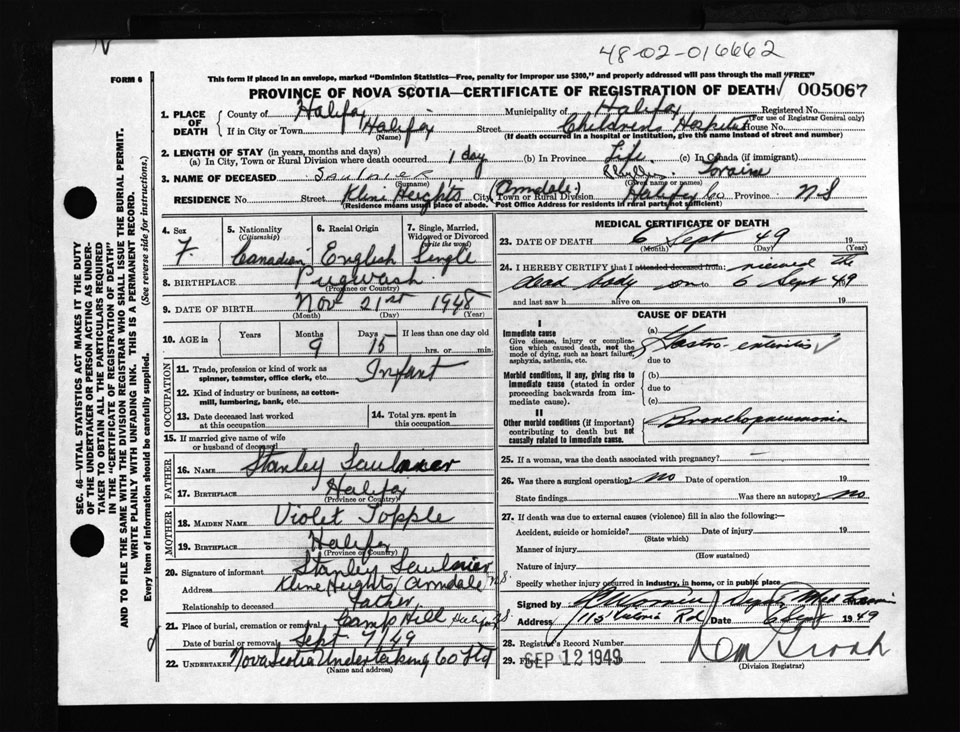 48-02-016662
FORM 6
This form if placed in an envelope, marked "Dominion Statistics—Free, penalty for improper use $300," and properly addressed will pass through the mail "FREE"
PROVINCE OF NOVA SCOTIA—CERTIFICATE OF REGISTRATION OF DEATH 005067
SEC. 46—VITAL STATISTICS ACT MAKES IT THE DUTY
OF THE UNDERTAKER OR PERSON ACTING AS UNDER-
TAKER TO OBTAIN ALL THE PARTICULARS REQUIRED
IN THE "CERTIFICATE OF REGISTRATION OF DEATH"
AND TO FILE THE SAME WITH THE DIVISION REGISTRAR WHO SHALL ISSUE THE BURIAL PERMIT.
WRITE PLAINLY WITH UNFADING INK. THIS IS A PERMANENT RECORD.
Every item of information should be carefully supplied. (See reverse side for instructions.)
1. PLACE OF DEATH
County of Halifax Municipality of Halifax Registered No.
(For use of Registrar General only)
If in City or Town Halifax Street Childrens Hospital House No.
(Name) (If death occurred in a hospital or institution, give the name instead of street and number)
2. LENGTH OF STAY (in years, months and days)
(a) In City, Town or Rural Division where death occurred 1 day (b) In Province Life (c) In Canada (if immigrant)
3. NAME OF DECEASED SAULNIER Phyllis Loraine
(Surname) (Given name or names)
RESIDENCE No. Street Kline Heights (Armdale) City, Town or Rural Division Halifax Co Province N S
(Residence means usual place of abode. Post Office Address for residents in rural parts not sufficient)
4. Sex 5. Nationality (Citizenship) 6. Racial Origin 7. Single, Married, Widowed or Divorced (write the word)
F. Canadian English Single
8. BIRTHPLACE Pugwash
(Province or Country)
9. DATE OF BIRTH Nov 21st 1948
(Month) (Day) (Year)
10. AGE in Years Months Days If less than one day old
9 15 hrs. or min.
OCCUPATION
11. Trade, profession or kind of work as spinner, teamster, office clerk, etc. Infant
12. Kind of industry or business, as cotton-mill, lumbering, bank, etc.
13. Date deceased last worked at this occupation 14. Total yrs. spent in this occupation
15. If married give name of wife or husband of deceased
FATHER
16. NAME Stanley Saulnier
17. BIRTHPLACE Halifax
(Province or Country)
MOTHER
18. MAIDEN NAME Violet Topple
19. BIRTHPLACE Halifax
(Province or Country)
20. Signature of informant Stanley Saulnier
Address Kline Heights Armdale N.S.
Relationship to deceased Father
21. Place of burial, cremation or removal Camp Hill Halifax N.S.
Date of burial or removal Sept 7/49
22. UNDERTAKER Nova Scotia Undertaking Co Ltd
(Name and address)
MEDICAL CERTIFICATE OF DEATH
23. DATE OF DEATH 6 Sept 49 19
(Month) (Day) (Year)
24. I HEREBY CERTIFY that I attended deceased from: viewed the
dead body on 6 Sept 49
and last saw h alive on 19
CAUSE OF DEATH
I
Immediate cause (a) Gastro-enteritis
Give disease, injury or complication which caused death, not the mode of dying, such as heart failure, asphyxia, asthenia, etc.
due to
Morbid conditions, if any, giving rise to immediate cause (stated in order proceeding backwards from immediate cause).
(b)
due to
(c)
II
Other morbid conditions (if important) contributing to death but not causally related to immediate cause. Bronchopneumonia
25. If a woman, was the death associated with pregnancy?
26. Was there a surgical operation? no Date of operation 19
State findings Was there an autopsy? no
27. If death was due to external causes (violence) fill in also the following:—
Accident, suicide or homicide? Date of injury 19
(State which)
Manner of injury
(How sustained)
Nature of injury
Specify whether injury occurred in industry, in home, or in public place
Signed by
Address Victoria Rd Date 6 Sept 1949
28. Registrar's Record Number
29. SEP 12 1949
(Division Registrar)